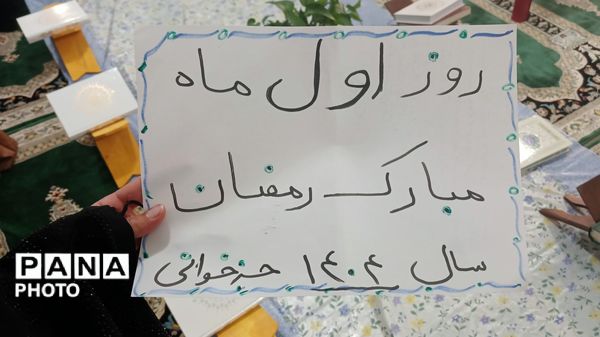 روز اول ماه
مبارک رمضان
سال ۱۴۰۴ جزخوانی
PANA
PHOTO